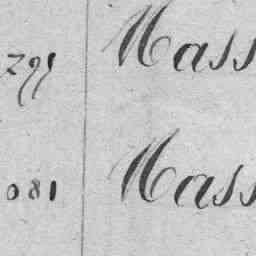 Mass
081 Mass